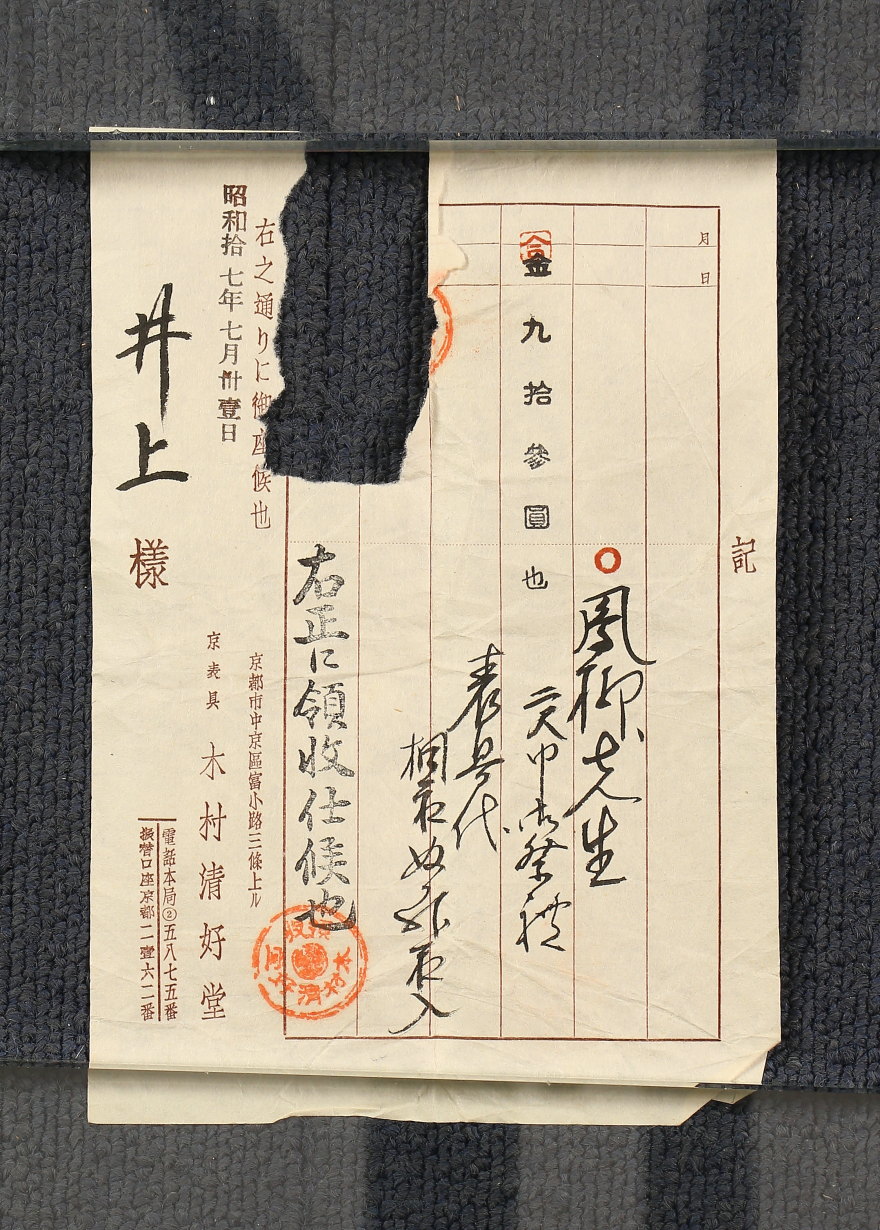 記
月
日
鳳柳先生
金九拾參圓也
表具代
右正に領收仕候也
右之通りに御座候也
昭和拾七年七月卅壹日
井上様
京都市中京區富小路三條上ル
京表具 木村清好堂
電話本局②五八七五番
振替口座京都二壹六二番